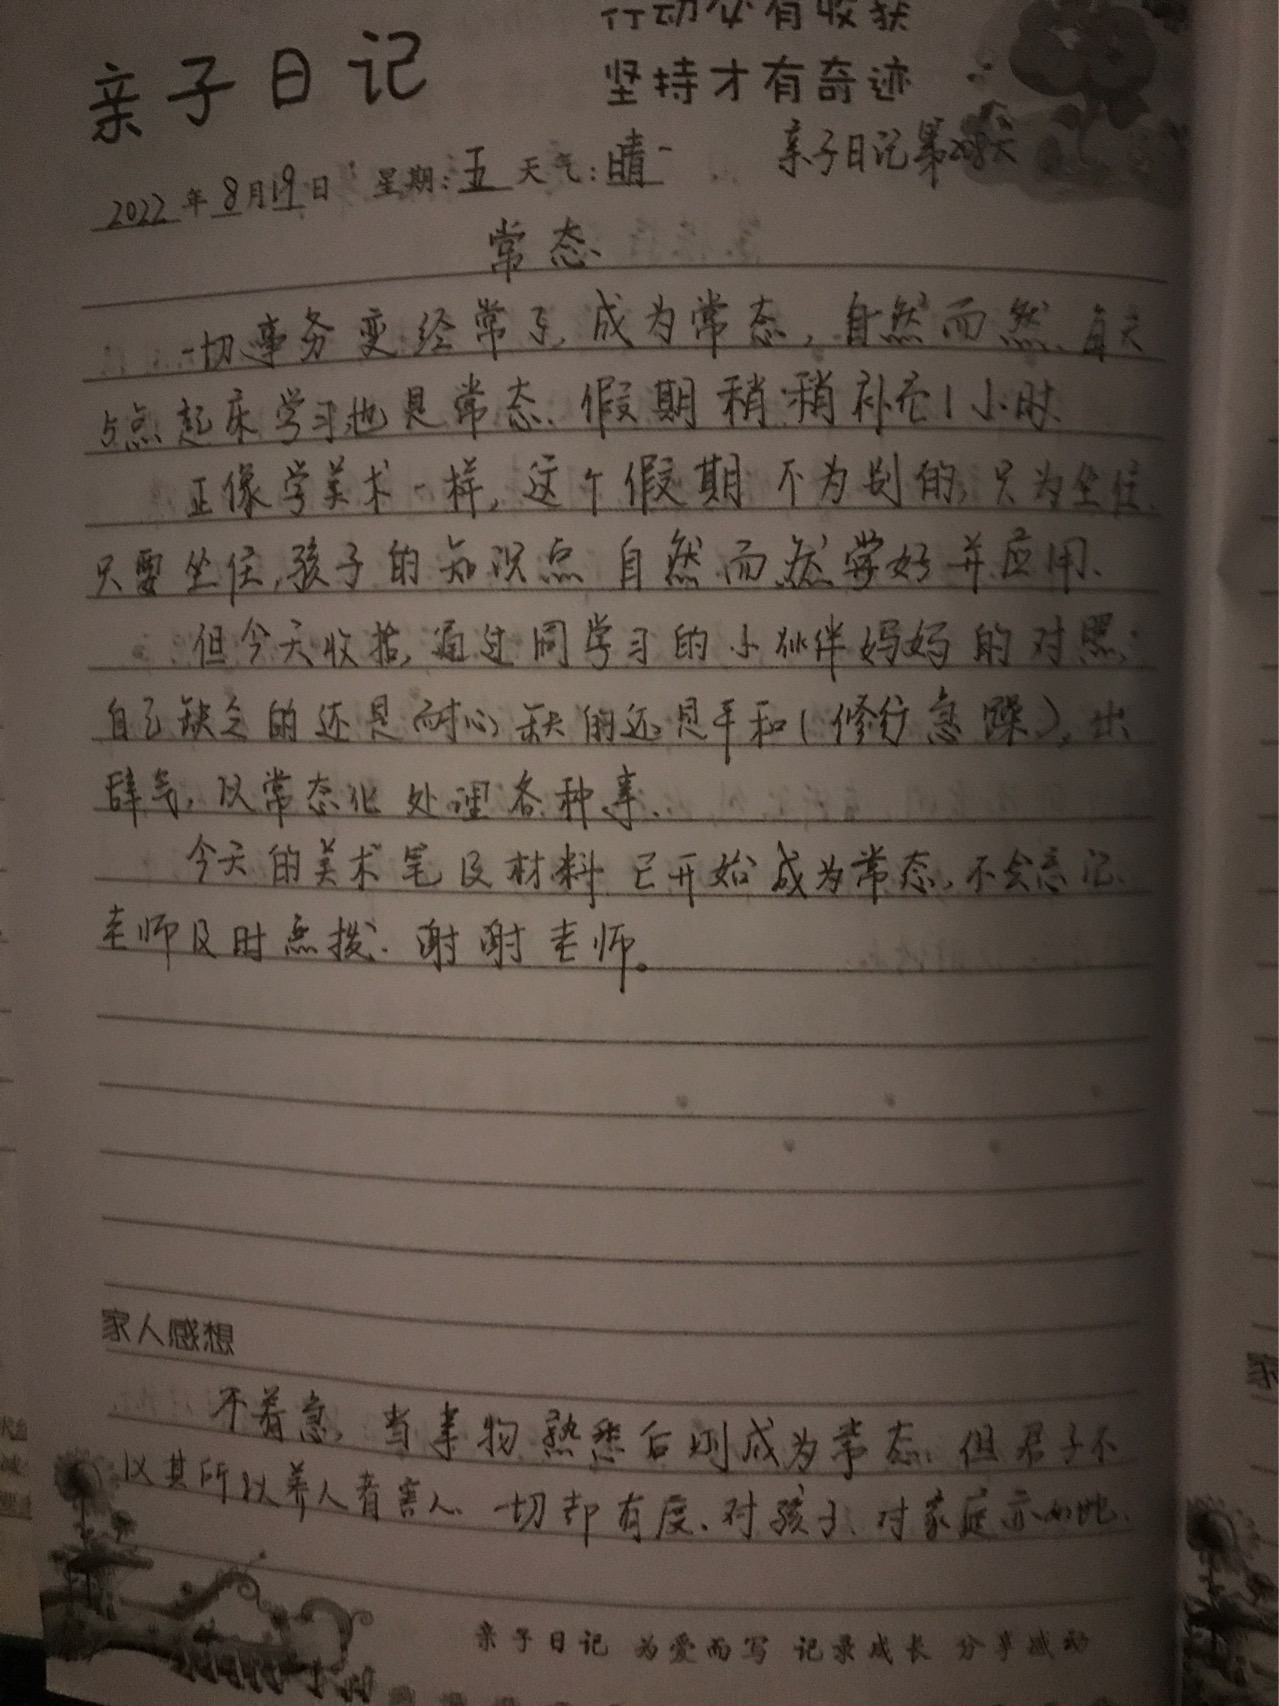 行动必有收获
亲子日记
坚持才有奇迹
亲子日记第208天
2022年8月19日 星期:五 天气:晴
常态、
一切事务变经常了,成为常态,自然而然、每天
5点起床学习也是常态、假期稍稍补充1小时、
正像学美术一样,这个假期不为别的,只为坐住、
只要坐住,孩子的知识点自然而然学好并应用、
但今天收拾,通过同学习的小伙伴妈妈的对照,
自己缺乏的还是耐心,缺的还是平和(修行急躁),出
辞气,以常态化处理各种事、
今天的美术笔及材料已开始成为常态,不会忘记、
老师及时点拨、谢谢老师。
家人感想
不着急,当事物熟悉后则成为常态、但君子不
以其所以养人者害人、一切都有度、对孩子、对家庭亦如此、
亲子日记 为爱而写 记录成长 分享感动